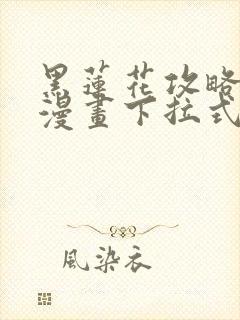 黑蓮花攻略
漫畫下拉式
風染衣